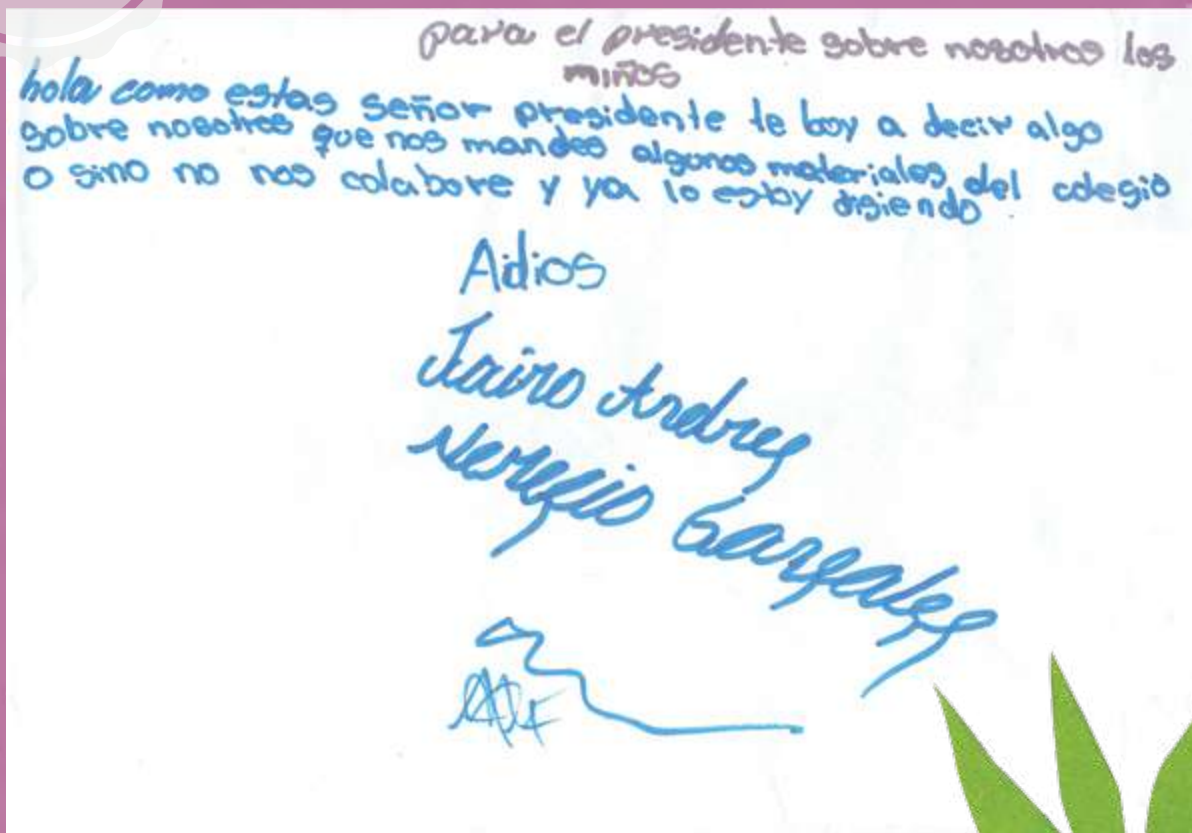 para el presidente sobre nosotros los
miños
hola como estas señor presidente te boy a decir algo
sobre nosotros que nos mandes algunos materiales del colegio
o sino no nos colabore y ya lo estoy disiendo
Adios
Jairo Andres